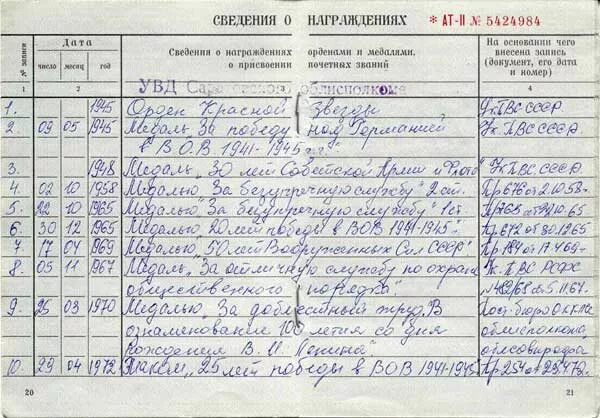 СВЕДЕНИЯ О НАГРАЖДЕНИЯХ * АТ-II № 5424984
№ записи Дата Сведения о награждениях орденами и медалями, На основании чего
число месяц год о присвоении почетных званий внесена запись
(документ, его дата
и номер)
1 2 3 4
УВД Саратовского облисполкома
1. 1945 Орден Красной Звезды Ук. ПВС СССР
2. 09 05 1945 Медаль За победу над Германией Ук. ПВС СССР.
в В.О.В. 1941-1945 г.г."
3. 1948 Медаль "30 лет Советской Армии и Флота" Ук ПВС СССР.
4. 02 10 1958 Медалью "За безупречную службу" 2 ст. Пр 676 от 2.10.58г.
5. 22 10 1965 Медалью "За безупречную службу" 1 ст.
6. 30 12 1965 Медалью "20 лет победы в ВОВ 1941-1945 г." Пр. 672 от 30.12.65
7. 17 04 1969 Медалью "50 лет Вооруженных Сил СССР" Пр. 184 от 17.4.69г.
8. 05 11 1967 Медаль "За отличную службу по охране Ук. ПВС РСФС
общественного порядка". от 5.11.67.
9. 25 03 1970 Медалью "За доблестный труд. В Пост. бюро ОК КПСС
ознаменование 100 летия со дня облисполкома,
Рождения В. И. Ленина" облсовпрофа
10. 29 04 1972 Знаком "25 лет победы в ВОВ 1941-1945 Пр 254 от 29.4.72г.
20 21